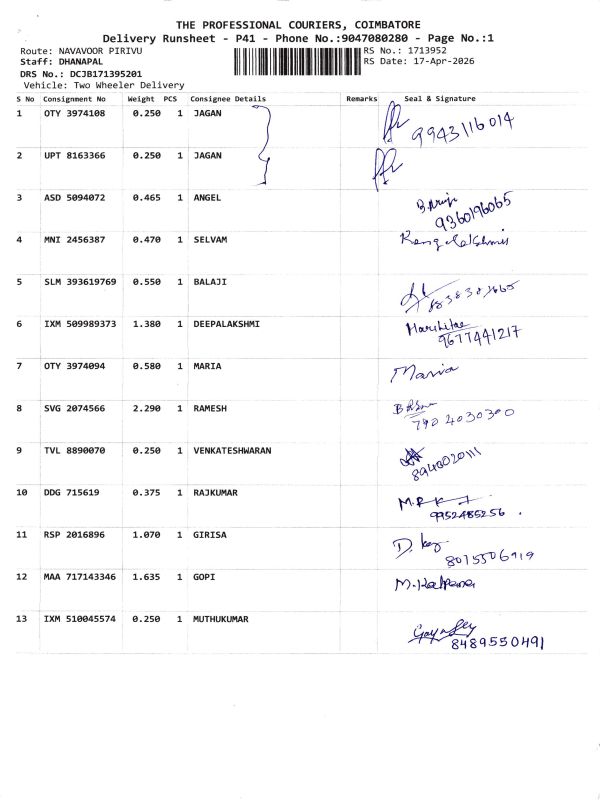 THE PROFESSIONAL COURIERS, COIMBATORE
Delivery Runsheet - P41 - Phone No.:9047080280 - Page No.:1
Route: NAVAVOOR PIRIVU RS No.: 1713952
Staff: DHANAPAL RS Date: 17-Apr-2026
DRS No.: DCJB171395201
Vehicle: Two Wheeler Delivery
S No Consignment No Weight PCS Consignee Details Remarks Seal & Signature
1 OTY 3974108 0.250 1 JAGAN 9943116014
2 UPT 8163366 0.250 1 JAGAN
3 ASD 5094072 0.465 1 ANGEL
9360196065
4 MNI 2456387 0.470 1 SELVAM
5 SLM 393619769 0.550 1 BALAJI
6 IXM 509989373 1.380 1 DEEPALAKSHMI
9677441217
7 OTY 3974094 0.580 1 MARIA Maria
8 SVG 2074566 2.290 1 RAMESH
7904030300
9 TVL 8890070 0.250 1 VENKATESHWARAN
8940020111
10 DDG 715619 0.375 1 RAJKUMAR
9952485256
11 RSP 2016896 1.070 1 GIRISA
8075506919
12 MAA 717143346 1.635 1 GOPI M.Kalpana
13 IXM 510045574 0.250 1 MUTHUKUMAR
8489550491